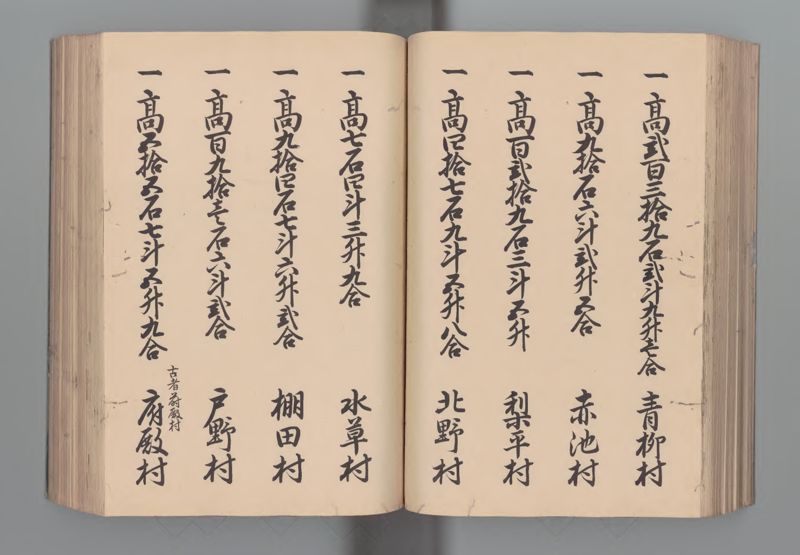 一 高弐百三拾九石弐斗九升壱合 青柳村
一 高九拾石六斗弐升五合 赤池村
一 高百弐拾九石三斗五升 梨平村
一 高四拾七石九斗五升八合 北野村
一 高七石四斗三升九合 水草村
一 高九拾四石七斗六升弐合 棚田村
一 高百九拾壱石六斗弐合 戸野村
古者府殿村
一 高五拾五石七斗五升九合 府殿村